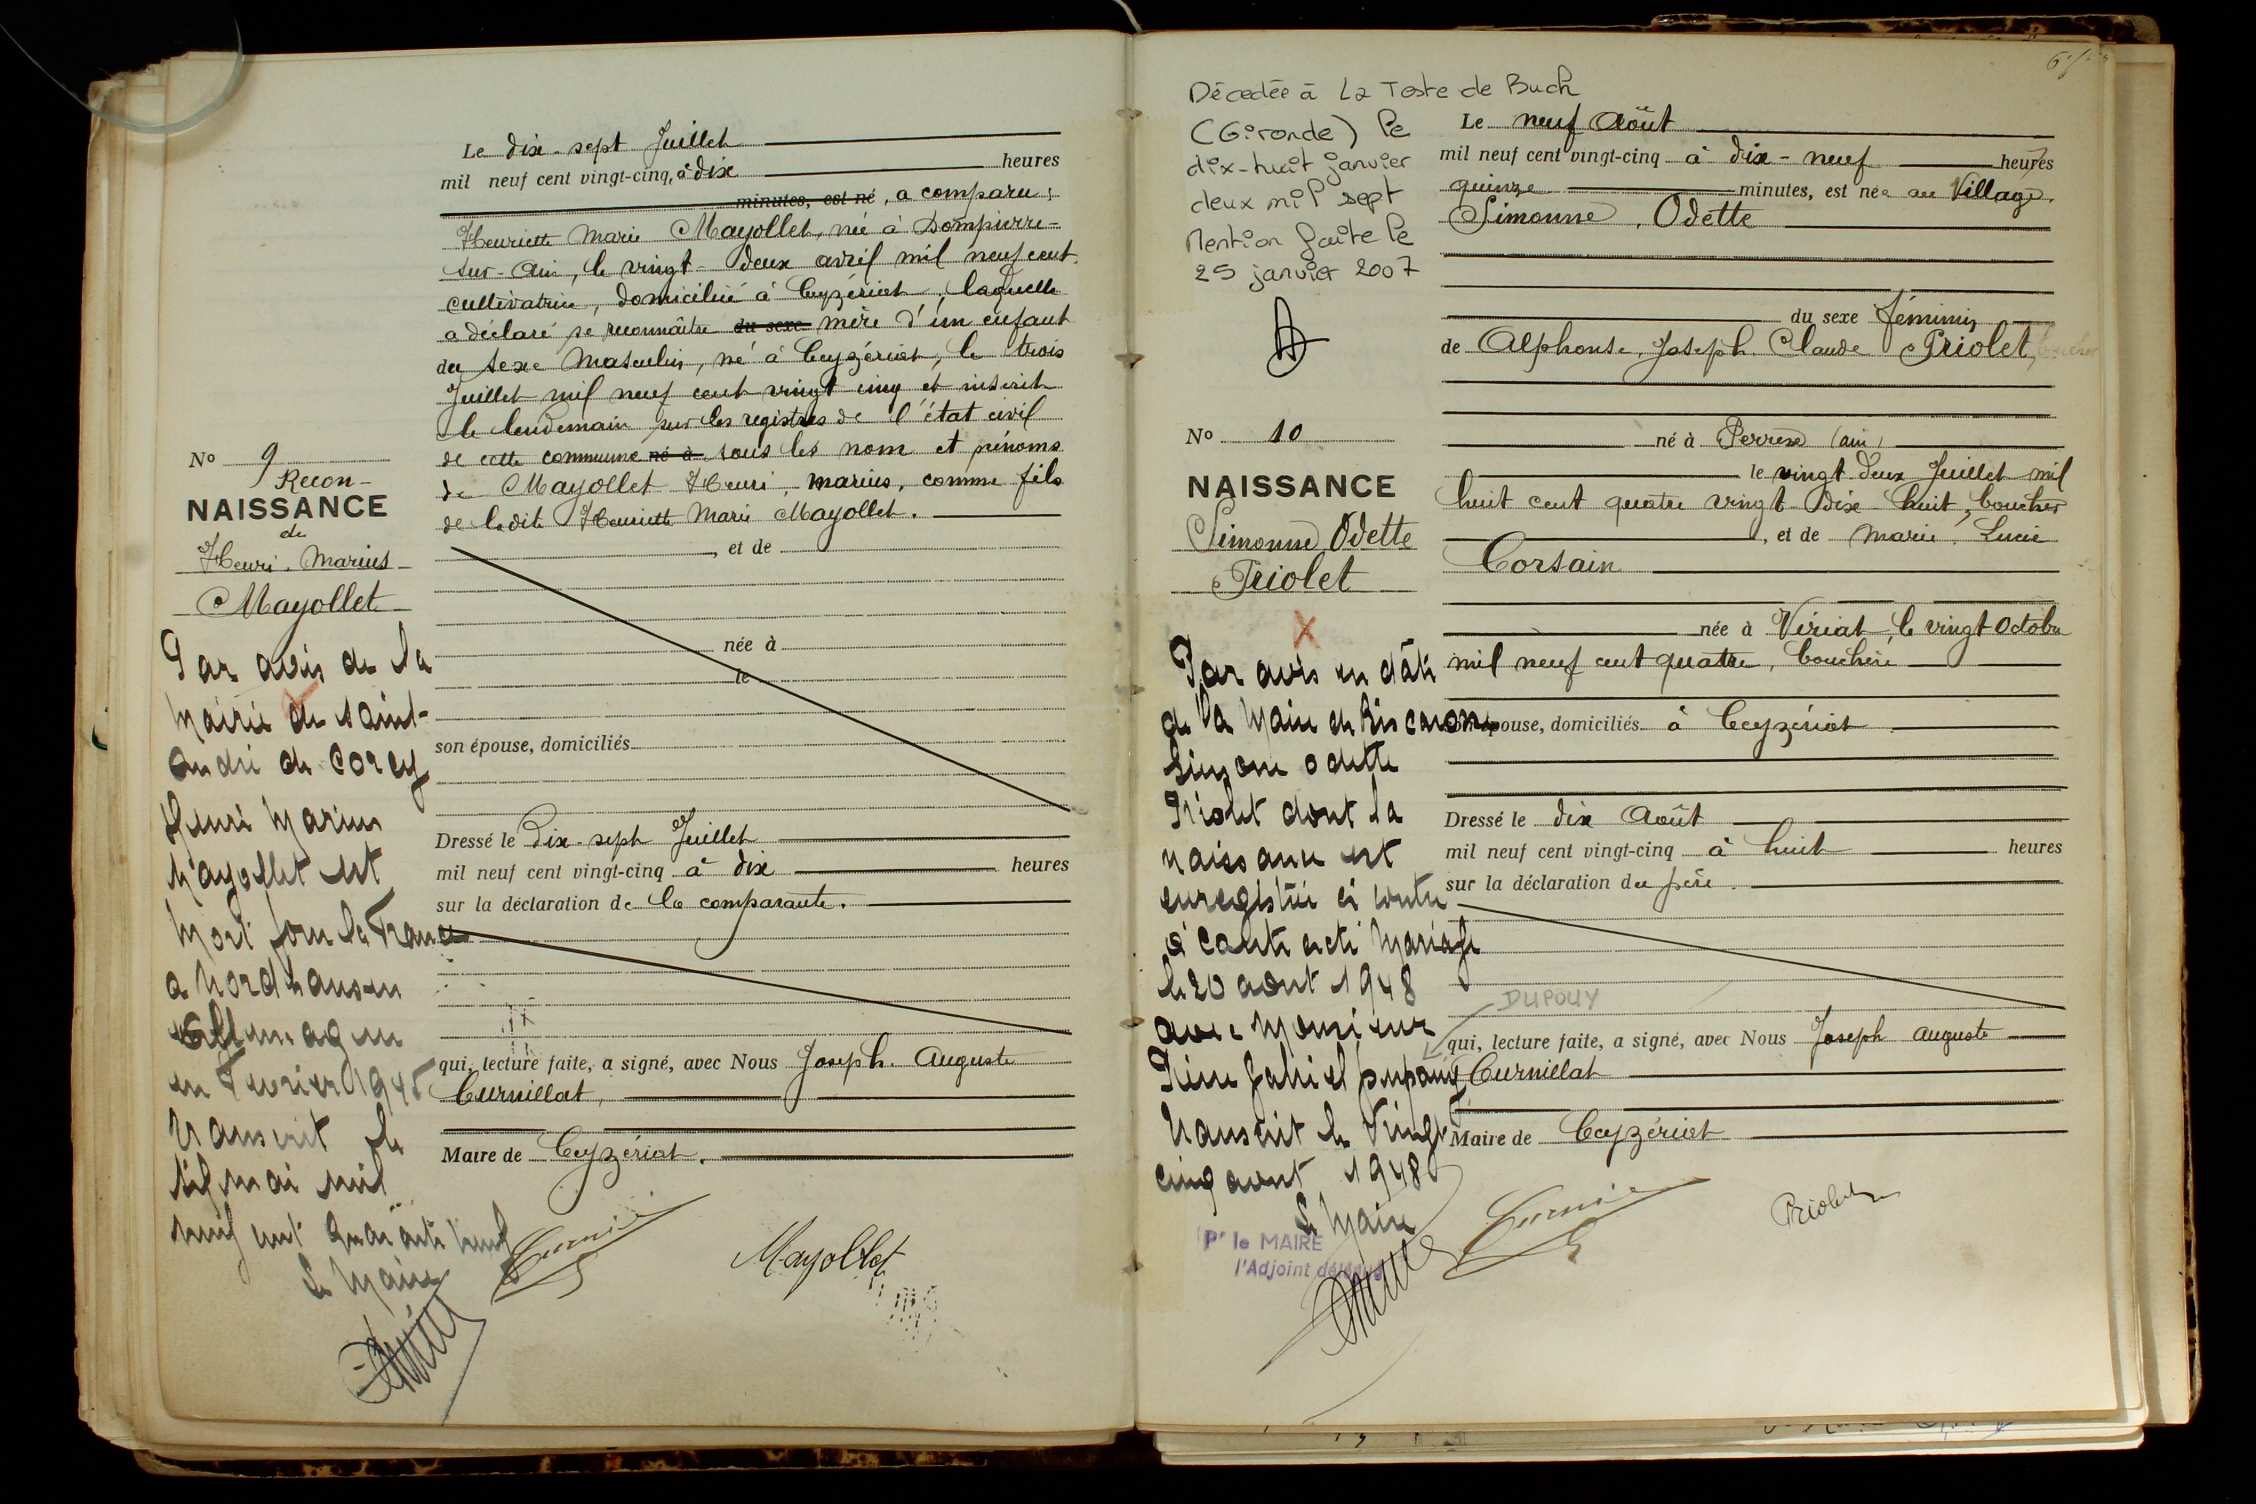 Le dix-sept Juillet
mil neuf cent vingt-cinq, à dix heures
minutes, est né, a comparu :
Henriette Marie Mayollet, née à Dompierre-
sur-Ain, le vingt-deux avril mil neuf cent
cultivatrice, domiciliée à Ceyzériat, laquelle
a déclaré se reconnaître du sexe mère d'un enfant
du sexe Masculin, né à Ceyzériat, le trois
Juillet mil neuf cent vingt cinq et inscrit
le lendemain sur les registres de l'état civil
de cette commune né à sous les nom et prénoms
de Mayollet Henri, Marius, comme fils
de ladite Henriette Marie Mayollet.
, et de
née à
le
son épouse, domiciliés
Dressé le Dix-sept Juillet
mil neuf cent vingt-cinq à dix heures
sur la déclaration de la comparante.
qui, lecture faite, a signé, avec Nous Joseph Auguste
Curnillat,
Maire de Ceyzériat.
Mayollet
No 9
Recon-
NAISSANCE
de
Henri, Marius
Mayollet
Par avis de la
Mairie de Saint-
André de Corcy
Henri Marius
Mayollet est
Mort pour la France
a Nordhausen
Allemagne
en Fevrier 1945
transcrit le
mai mil
neuf cent quarante neuf
Le Maire
Décédée à La Teste de Buch
(Gironde) le
dix-huit janvier
deux mil sept
Mention faite le
25 janvier 2007
No 10
NAISSANCE
Simonne Odette
Priolet
Par avis en date
de la Maire de Biscarosse
Simone Odette
Priolet dont la
naissance est
enregistrée ci contre
a contracté Mariage
le 20 aout 1948
avec Monsieur
Gabriel Dupouy
transcrit le Vingt
cinq aout 1948
Le Maire
Pr le MAIRE
l'Adjoint délégué
Le neuf Août
mil neuf cent vingt-cinq à dix-neuf heures
quinze minutes, est née au Village,
Simonne, Odette
du sexe féminin
de Alphonse, Joseph Claude Priolet, boucher
né à Perrex (ain)
le vingt deux Juillet mil
huit cent quatre vingt dix huit, boucher
, et de Marie, Lucie
Corsain
née à Viriat, le vingt Octobre
mil neuf cent quatre, bouchère
son épouse, domiciliés à Ceyzériat
Dressé le dix Août
mil neuf cent vingt-cinq à huit heures
sur la déclaration du père.
DUPOUY
qui, lecture faite, a signé, avec Nous Joseph Auguste
Curnillat
Maire de Ceyzériat
Priolet